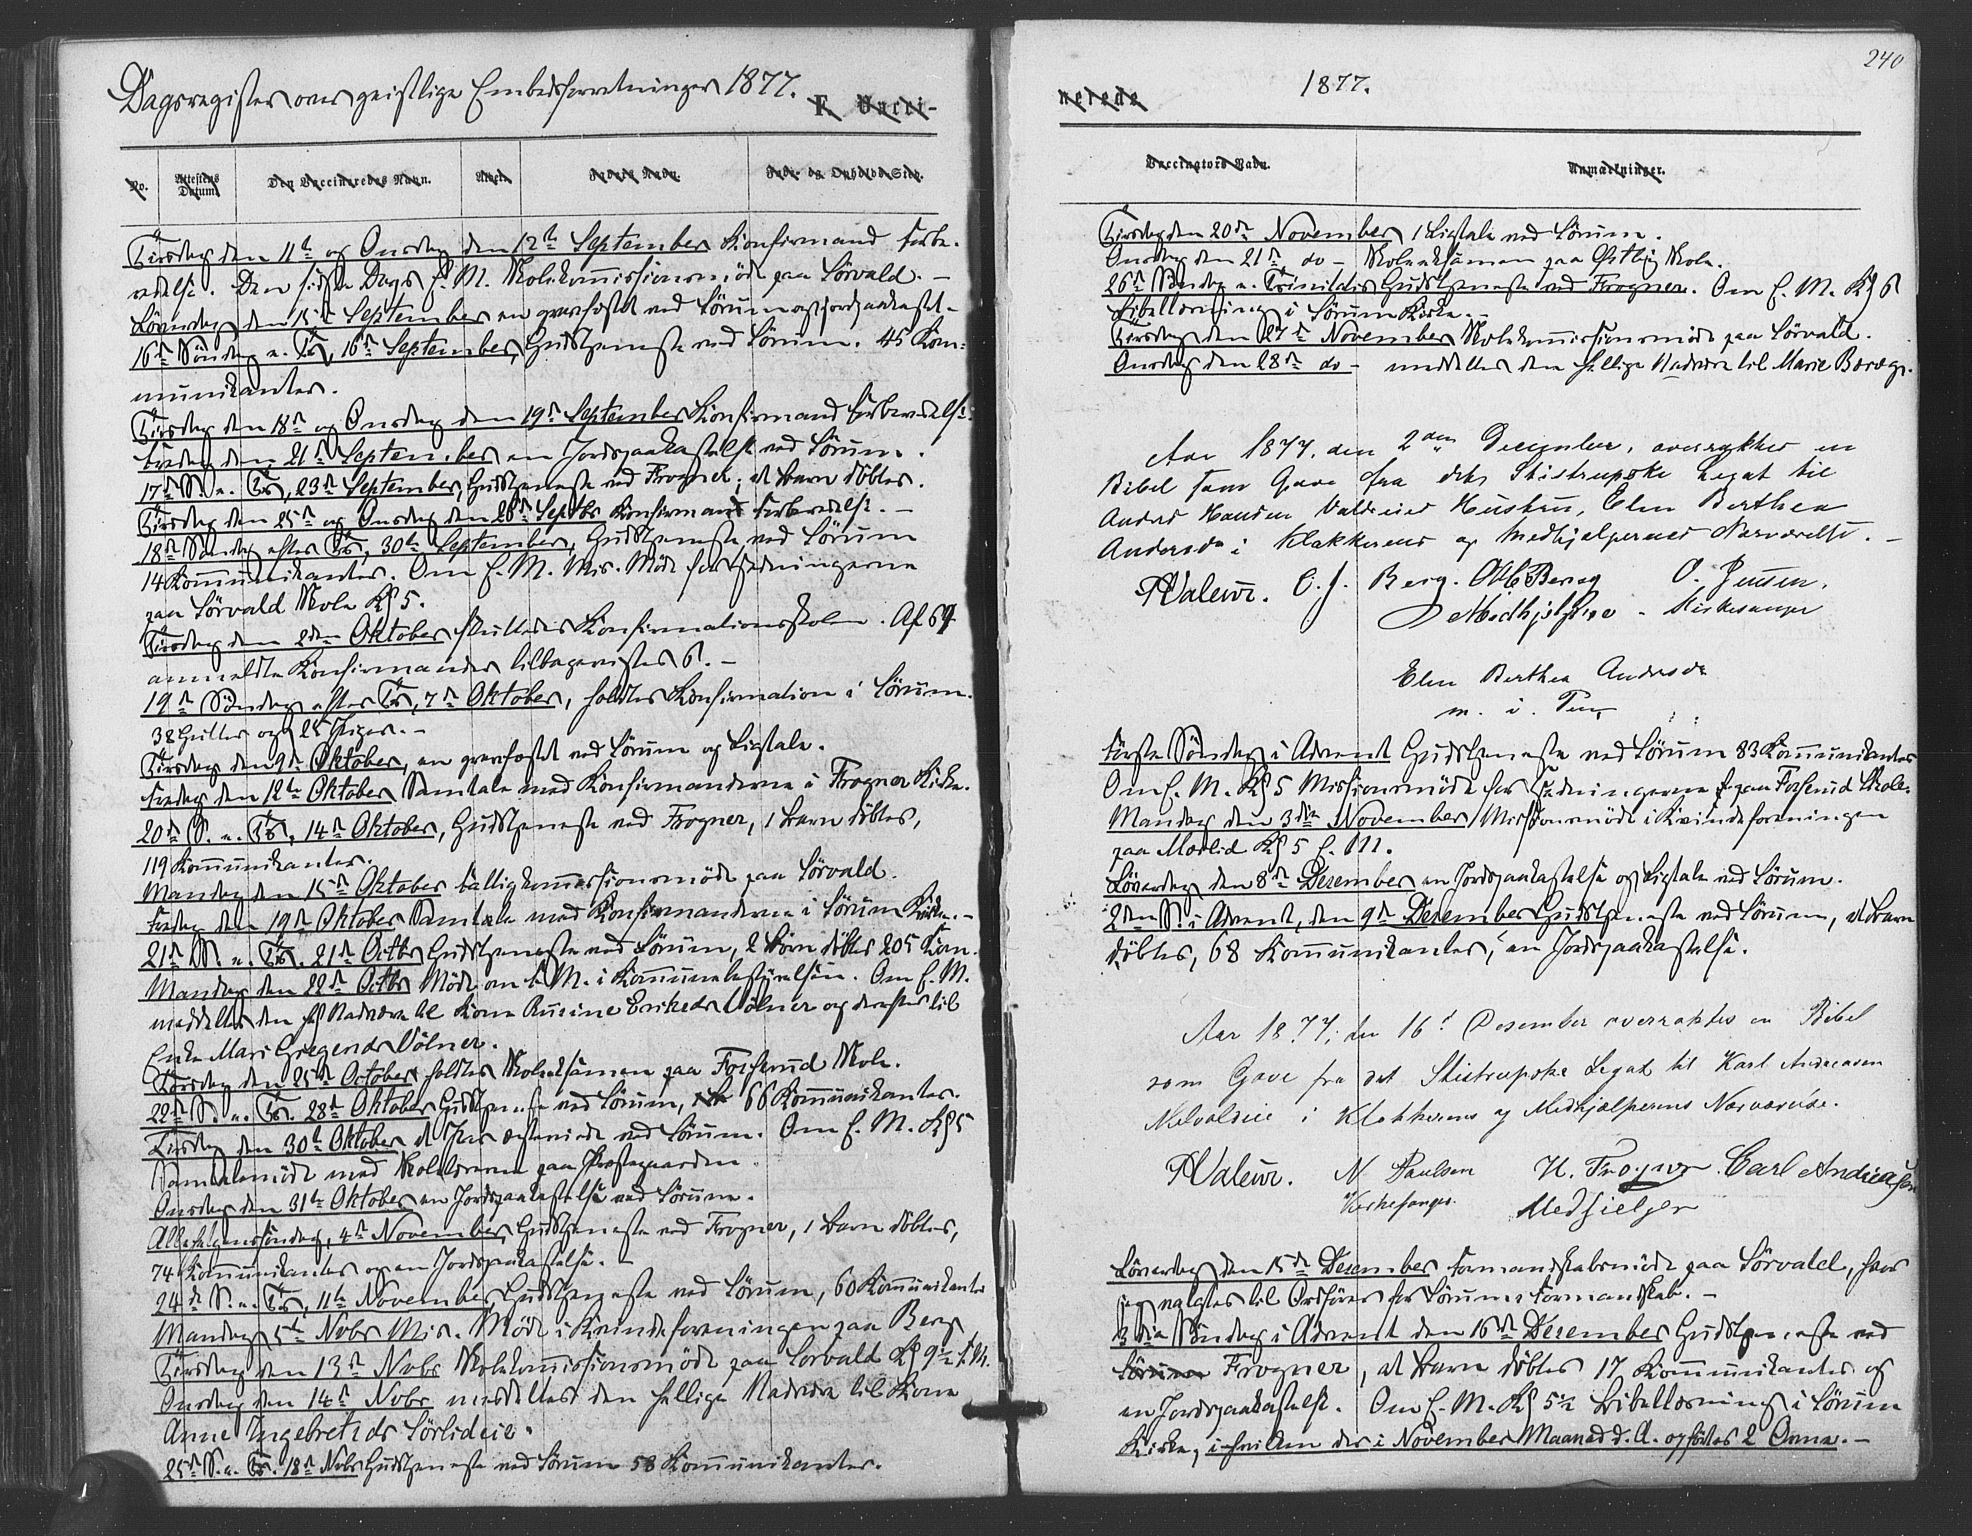 Dagsregister over geistlige Embedsforretninger 1877.
F. Vacci-
No.
Attestens Datum
Den Vaccineredes Navn.
Alder.
Faders Navn.
Føde- og Opholds-Sted.
Tirsdag den 11te og Onsdag den 12te September Konfirmand Forbe-
redelse. Den sidste Dags E. M. Skolekommissionsmöde paa Sörvald. —
Löverdag den 15de September en gravfæstet ved Sörum og Jordpaakastel-
16de Söndag e. Tr., 16de September, Gudstjeneste ved Sörum. 45 Kom-
munikanter.
Tirsdag den 18de og Onsdag den 19de September Konfirmand Forberedelse.
Fredag den 21de September en Jordpaakastelse ved Sörum.
17de S. e. Tr., 23de September, Gudstjeneste ved Frogner, et Barn döbtes.
Tirsdag den 25de og Onsdag den 26de Septbr Konfirmand Forberedelse. —
18de Söndag efter Tr., 30te September, Gudstjeneste ved Sörum
14 Kommunikanter. Om E. M. Mis. Möde for Hedningerne
paa Sörvald Skole Kl 5.
Tirsdag den 2den Oktober sluttedes Konfirmationsskolen. Af 64
anmeldte Konfirmander tilbagevistes 6. —
19de Söndag efter Tr., 7de Oktober, holdtes Konfirmation i Sörum.
38 Gutter og 25 Piger. —
Tirsdag den 9de Oktober, en gravfæstet ved Sörum og Ligtale.
Fredag den 12te Oktober Samtale med Konfirmanderne i Frogner Kirke.
20de S. e. Tr., 14de Oktober, Gudstjeneste ved Frogner, 1 Barn döbtes,
119 Kommunikanter.
Mandag den 15de Oktober Fattigkommissionsmöde paa Sörvald.
Fredag den 19de Oktober Samtale med Konfirmanderne i Sörum Kirke. —
21de S. e. Tr. 21de Octbr Gudstjeneste ved Sörum, 2 Börn döbtes 205 Kom.
Mandag den 22de Octbr Möde om F. M. i Kommunebestyrelsen. Om E. M.
meddeltes den hel. Nadvere til Kone Rusine Eriksdr Völner og derefter til
Enke Mari Gregersdr Völner.
Torsdag den 25de October holdtes Skoleeksamen paa Forserud Skole.
22de S. e. Tr. 28de Oktober Gudstjeneste ved Sörum, 66 Kommunikanter.
Tirsdag den 30te Oktober et Par ægteviede ved Sörum. Om E. M. Kl 5
Samtalemöde med Skolelærerne paa Præstegaarden.
Onsdag den 31te Oktober en Jordpaakastelse ved Sörum.
Allehelgenssöndag, 4de November, Gudstjeneste ved Frogner, 1 Barn döbtes,
74 Kommunikanter og en Jordpaakastelse. —
24de S. e. Tr., 11te November, Gudstjeneste ved Sörum, 60 Kommunikanter
Mandag 5te Novbr Mis. Möde i Kvindeforeningen paa Berg
Tirsdag den 13de Novbr Skolekommissionsmöde paa Sorvald Kl 9½ F. M.
Onsdag den 14de Novbr meddeltes den hellige Nadvere til Kone
Anne Ingebretsdr Sörlideie.
25de S. e. Tr. 18de Novbr Gudstjeneste ved Sörum 58 Kommunikanter.
240
1877.
nerede
Vaccinators Navn.
Anmærkninger.
Tirsdag den 20de November, 1 Ligtale ved Sörum.
Onsdag den 21de do — Skoleeksamen paa Østby Skole.
26de Söndag e. Trinitatis Gudstjeneste ved Frogner. Om E. M. Kl 6
Bibellæsning i Sörum Kirke. —
Tirsdag den 27de November Skolekommissionsmöde paa Sörvald.
Onsdag den 28de do — meddeltes den hellige Nadvere til Marie
Aar 1877, den 2den December, overraktes en
Bibel som Gave fra det Skistrupske Legat til
Andr Hansen Valdreies Hustru, Elen Berthea
Andersdr i Klokkerens og Medhjelpernes Nærværelse. —
Valeur. C. J. Berg. O. Jensen,
Medhjelpere — Kirkesanger
Elen Berthea Andersdr
m. i. Pen.
Förste Söndag i Advent Gudstjeneste ved Sörum 83 Kommunikanter
Om E. M. Kl 5 Missionsmöde for Hedningerne paa Forserud Skole.
Mandag den 3die November Missionsmöde i Kvindeforeningen
paa Morlid Kl 5 E. M.
Löverdag den 8de Desember en Jordpaakastelse og Ligtale ved Sörum.
2den S. i Advent, den 9de Desember Gudstjeneste ved Sörum, et Barn
döbtes, 68 Kommunikanter, en Jordpaakastelse.
Aar 1877, den 16de Desember overraktes en Bibel
som Gave fra det Skistrupske Legat til Karl Andreasen
i Klokkerens og Medhjælperens Nærværelse.
Valeur. N Paulsen H. Frogner Carl Andreasen
Kirkesanger Medhielper
Löverdag den 15de Desember Formandskabsmöde paa Sörvald, hvor
jeg valgtes til Ordförer for Sörums Formandskab. —
3die Söndag i Advent den 16de Desember Gudstjeneste ved
Sörum Frogner, et Barn döbtes 17 Kommunikanter og
en Jordpaakastelse. Om E. M. Kl 5½ Bibellæsning i Sörum
Kirke, i hvilken der i November Maaned d. A. opförtes 2 Ovne. —